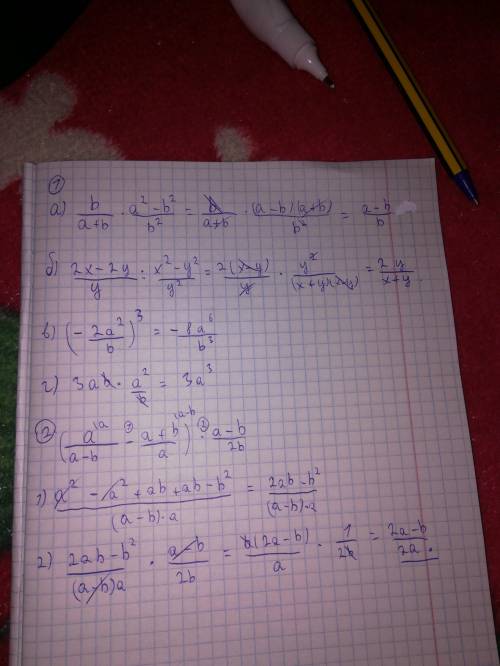 1
а) b/(a+b) · (a² - b²)/b² = b/(a+b) · (a-b)(a+b)/b² = (a-b)/b
б) (2x-2y)/y : (x²-y²)/y² = 2(x-y)/y · y²/((x+y)(x-y)) = 2y/(x+y)
в) (- 2a²/b)³ = - 8a⁶/b³
г) 3ab · a²/b = 3a³
2 (a/(a-b) - (a+b)/a) · (a-b)/2b
1) (a² - a² + ab + ab - b²)/((a-b)·a) = (2ab - b²)/((a-b)·a)
2) (2ab - b²)/((a-b)a) · (a-b)/2b = b(2a-b)/a · 1/2b = (2a-b)/2a.